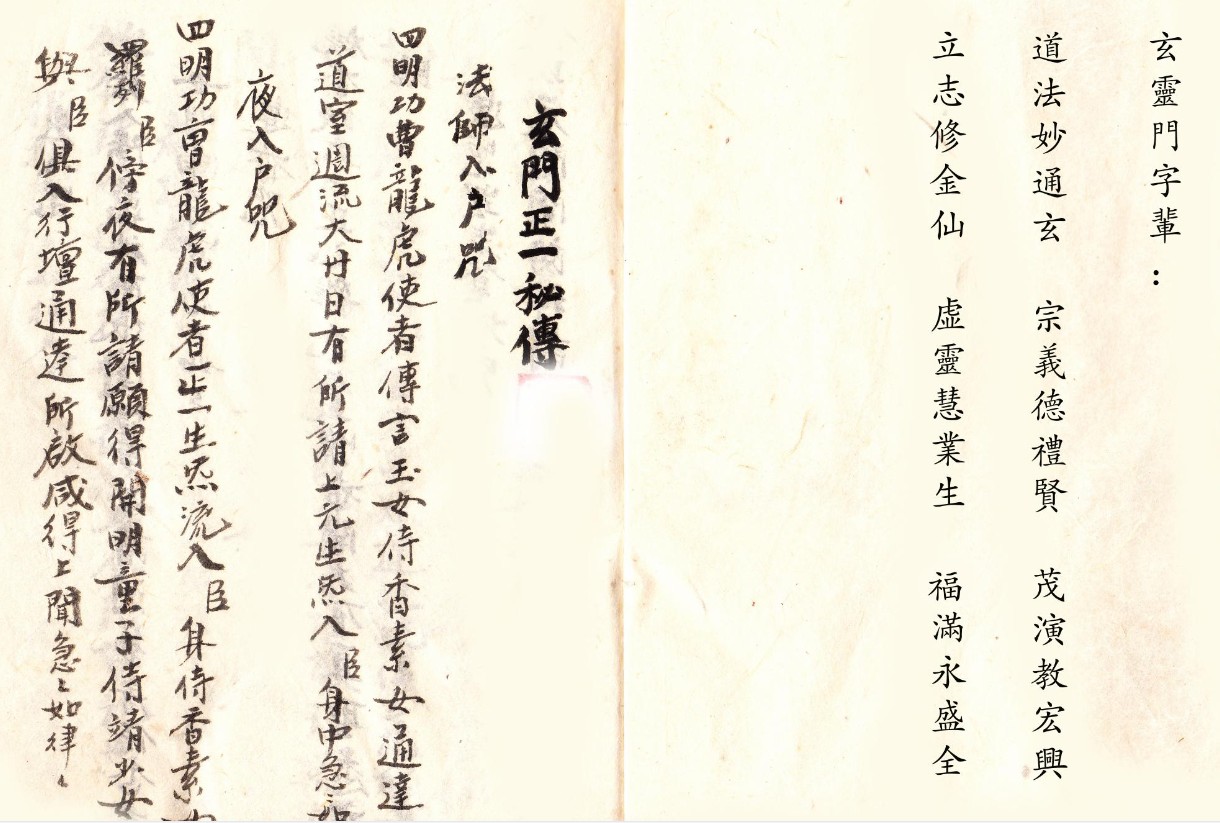 玄靈門字輩：
道法妙通玄 宗義德禮賢 茂演教宏興
立志修金仙 虛靈慧業生 福滿永盛全
玄門正一秘傳
法師入户咒
四明功曹龍虎使者傳言玉女侍香素女通達
道室週流大丹日有所請上元生炁入臣身中急〻如
夜入户咒
四明功曹龍虎使者正一生炁流入臣身侍香素女
羅列臣傍夜有所請願得開明童子侍靖少女
與臣俱入行壇通達所啟咸得上聞急〻如律〻